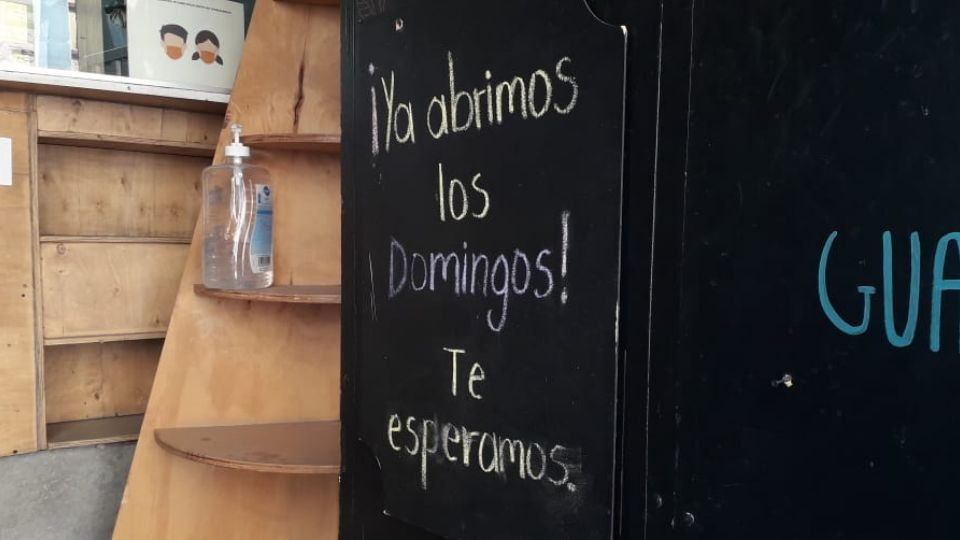 ¡Ya abrimos
los
Domingos!
Te
esperamos.
GUA